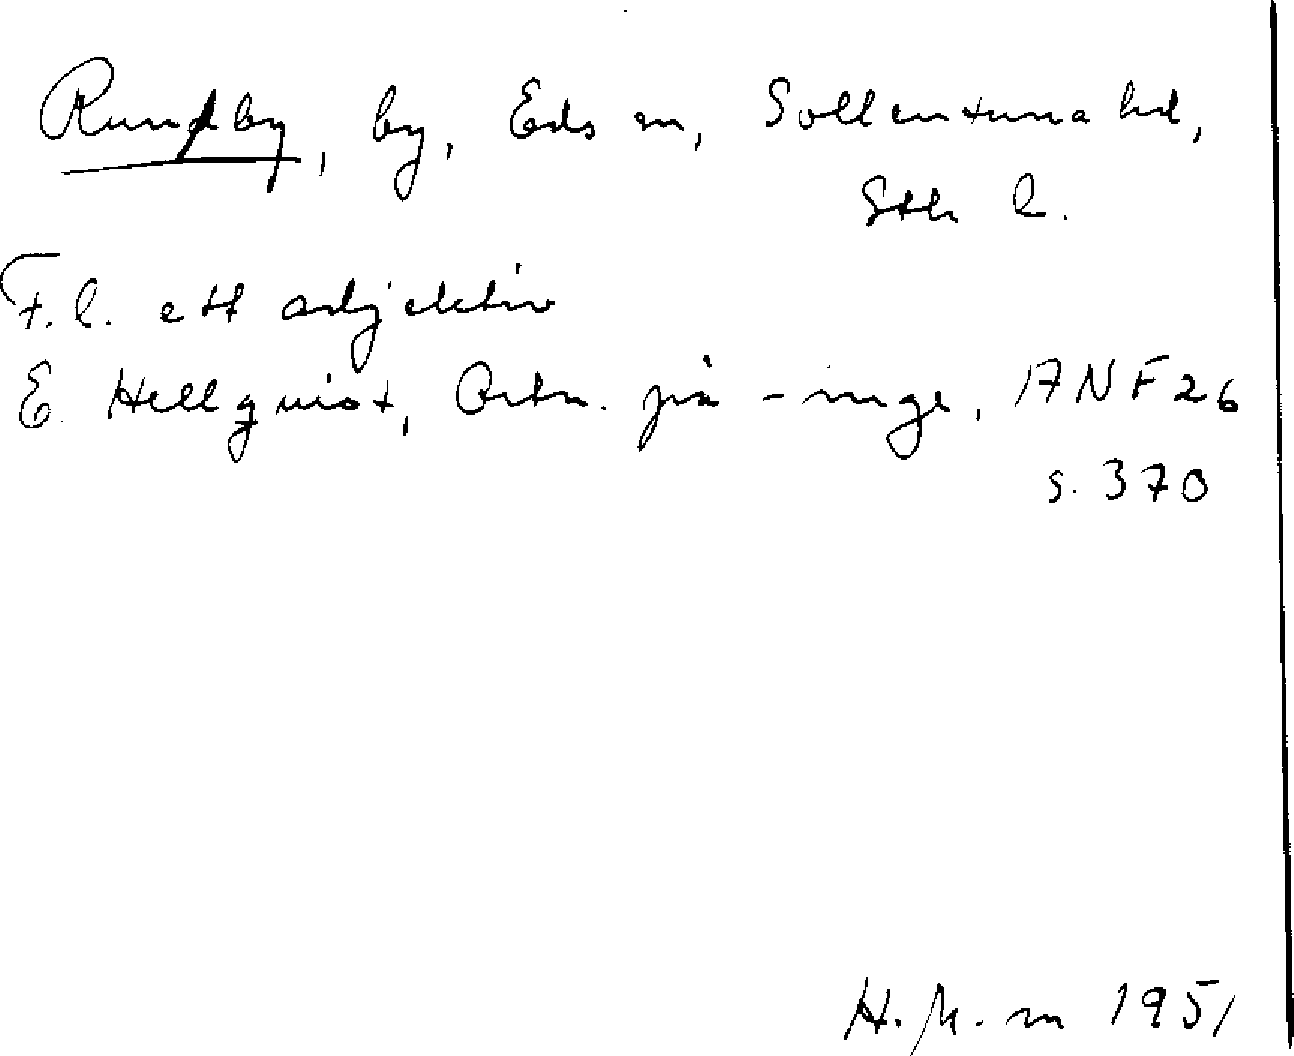 Rundby, by, Eds sn, Sollentuna hd,
Sth l.
F.l. ett adjektiv
E. Hellquist, Ortn. på -inge, ANF 26
s. 370
H. 1951